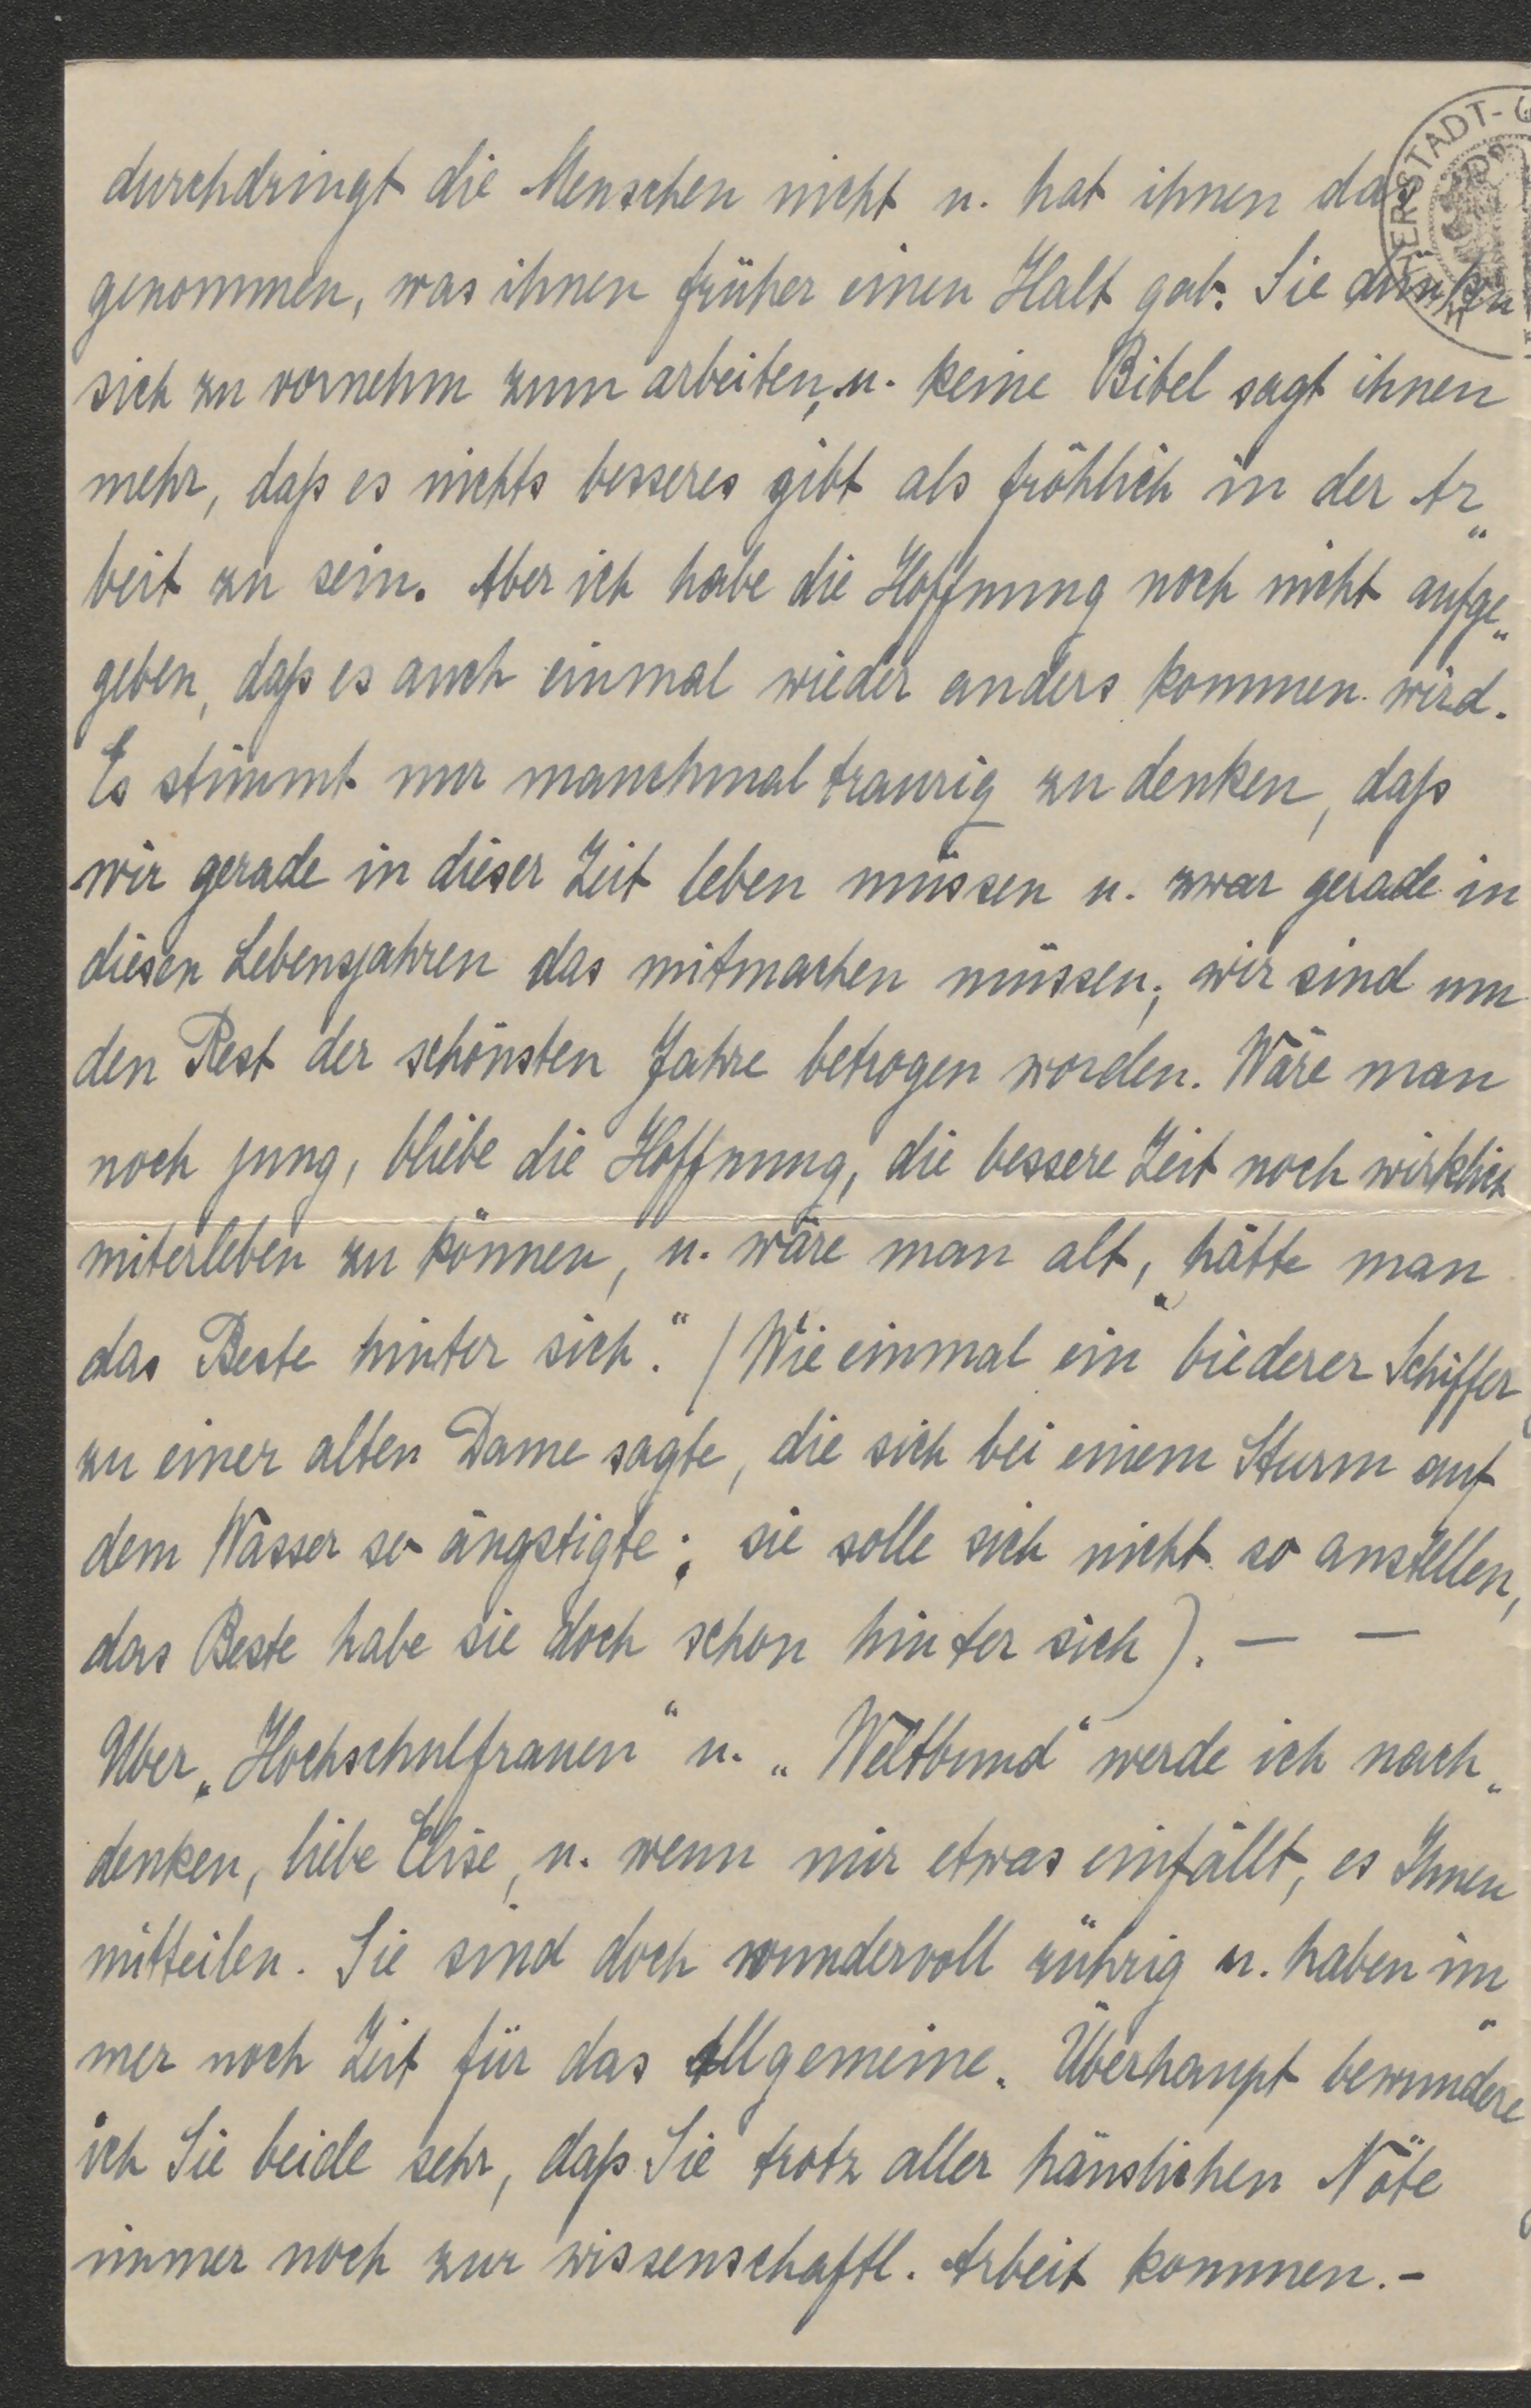 durchdringt die Menschen nicht u. hat ihnen das
genommen, was ihnen früher einen Halt gab. Sie dünken
sich zu vornehm zum arbeiten, u. keine Bibel sagt ihnen
mehr, daß es nichts besseres gibt als fröhlich in der Ar„
beit zu sein. Aber ich habe die Hoffnung noch nicht aufge„
geben, daß es auch einmal wieder anders kommen wird.
Es stimmt nur manchmal traurig zu denken, daß
wir gerade in dieser Zeit leben müssen u. zwar gerade in
diesen Lebensjahren das mitmachen müssen; wir sind um
den Rest der schönsten Jahre betrogen worden. Wäre man
noch jung, bliebe die Hoffnung, die bessere Zeit noch wirklich
miterleben zu können, u. wäre man alt, „hätte man
das Beste hinter sich.“ (Wie einmal ein biederer Schiffer
zu einer alten Dame sagte, die sich bei einem Sturm auf
dem Wasser so ängstigte; sie solle sich nicht so anstellen,
das Beste habe sie doch schon hinter sich). — —
Über „Hochschulfrauen“ u. „Weltbund“ werde ich nach„
denken, liebe Elise, u. wenn mir etwas einfällt, es Ihnen
mitteilen. Sie sind doch wundervoll rührig u. haben im„
mer noch Zeit für das Allgemeine. Überhaupt bewundere
ich Sie beide sehr, daß Sie trotz aller häuslichen Nöte
immer noch zur wissenschaftl. Arbeit kommen.-